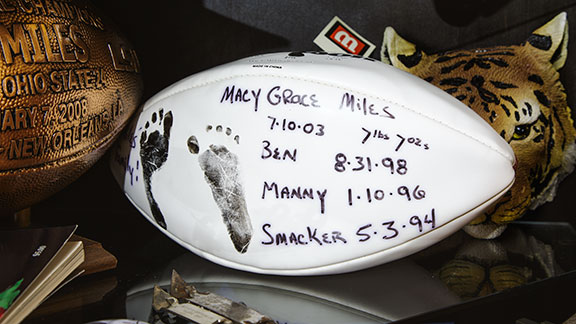 CHAMPION
MILES
OHIO STATE
ARY 7, 2008
NEW ORLEANS, LA
MADE IN CHINA
MACY GRACE MILES
7-10-03 7 lbs 7 ozs
BEN 8-31-98
MANNY 1-10-96
SMACKER 5-3-94